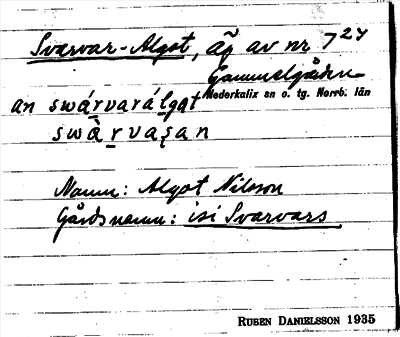 Svarvar-Algot, äg av nr 7²⁴
Gammelgården
Nederkalix sn o. tg. Norrb. län
an swárvarálgat
swàrvaṣan
Namn: Algot Nilsson
Gårdsnamn: isi Svarvars
RUBEN DANIELSSON 1935